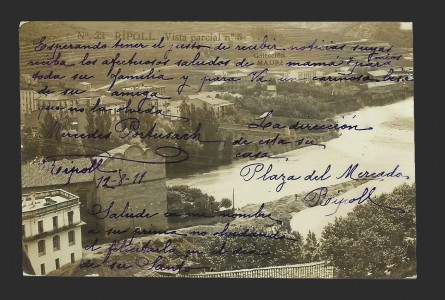 Nº. 23 RIPOLL. Vista parcial nº 5
Colección
MAURI
Esperando tener el justo de recibir noticias suyas
reciba los afectuosos saludos de mama para
toda su familia y para Vd un cariñoso beso
de su amiga
que no la olvida
Mercedes Portusach
Ripoll
12-8-11
La dirección
de esta su
casa
Plaza del Mercado
Ripoll
Salude en mi nombre
a su prima no olvidando
de su Santo